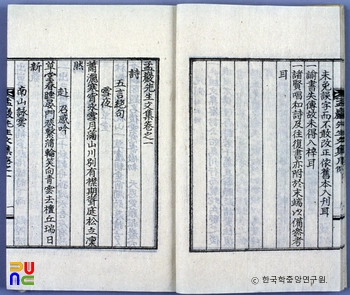 未免誤字而不敢改正依舊本入刊耳
一諭書失傳故未得入梓耳
一諸賢唱和詩及往復書亦附於末端以備參考
耳
孟巖先生文集卷之一
詩
五言絶句
雪夜
蕭灑寒宵永雪月滿山川別有襟期賞庭松立凜
然
赴召感吟
草堂春睡罷門外繫蒲輪笑向青雲去檀丘瑞日
新
南山詠雲
한국학중앙연구원